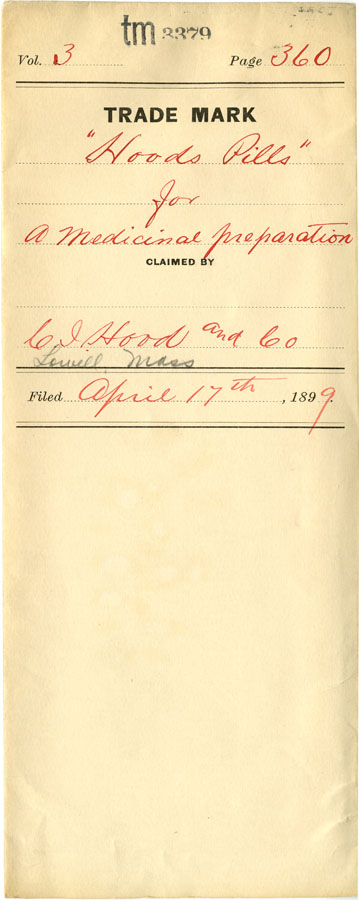 tm 3379
Vol. 3 Page 360
TRADE MARK
"Hoods Pills"
for
A Medicinal preparation
CLAIMED BY
C I. Hood and Co
Lowell, Mass
Filed April 17th, 1899.